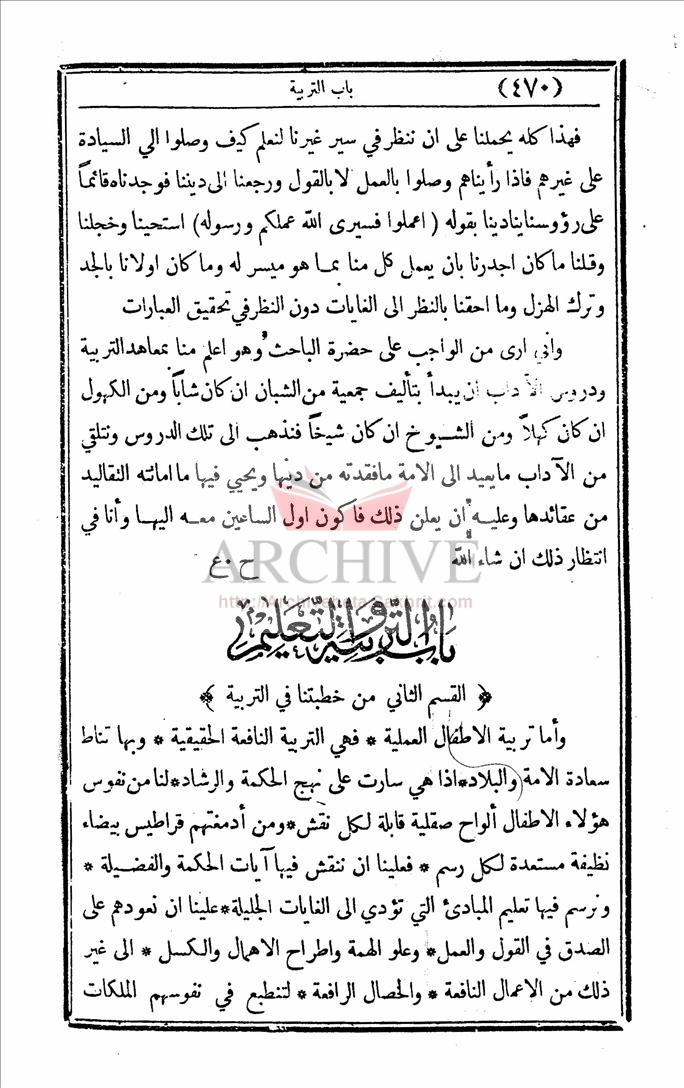 (٤٧٠) باب التربية
فهذا كله يحملنا على ان ننظر في سير غيرنا لنعلم كيف وصلوا الي السيادة
على غيرهم فاذا رأيناهم وصلوا بالعمل لا بالقول ورجعنا الى ديننا فوجدناه قائمًا
على رؤوسنا ينادينا بقوله (اعملوا فسيرى الله عملكم ورسوله) استحينا وخجلنا
وقلنا ما كان اجدرنا بان يعمل كل منا بما هو ميسر له وما كان اولانا بالجد
وترك الهزل وما احقنا بالنظر الى الغايات دون النظر في تحقيق العبارات
واني ارى من الواجب على حضرة الباحث وهو اعلم منا بمعاهد التربية
ودروس الآداب ان يبدأ بتأليف جمعية من الشبان ان كان شابًا ومن الكهول
ان كان كهلاً ومن الشيوخ ان كان شيخًا فنذهب الى تلك الدروس ونتلقي
من الآداب ما يعيد الى الامة ما فقدته من دينها ويحيي فيها ما اماتته التقاليد
من عقائدها وعليه أن يعلن ذلك فاكون اول الساعين معه اليها وأنا في
انتظار ذلك ان شاء الله ح ٠ع
ARCHIVE
باب التربية والتعليم
﴿ القسم الثاني من خطبتنا في التربية ﴾
وأما تربية الاطفال العملية * فهي التربية النافعة الحقيقية * وبها تناط
سعادة الامة والبلاد*اذا هي سارت على نهج الحكمة والرشاد*لنا من نفوس
هؤلاء الاطفال ألواح صقلية قابلة لكل نقش*ومن أدمغتهم قراطيس بيضاء
نظيفة مستعدة لكل رسم * فعلينا ان ننقش فيها آيات الحكمة والفضيلة *
ونرسم فيها تعليم المبادئ التي تؤدي الى الغايات الجليلة*علينا ان نعودهم على
الصدق في القول والعمل* وعلو الهمة واطراح الاهمال والكسل * الى غير
ذلك من الاعمال النافعة * والخصال الرافعة * لتنطبع في نفوسهم الملكات